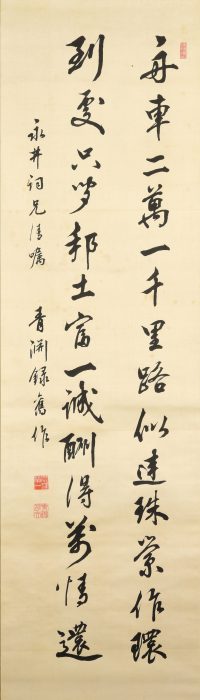 舟車二萬一千里路似連珠縈作環
到處只誇邦土富一誠酬得萬情還
永井詞兄清嘱 青淵録舊作